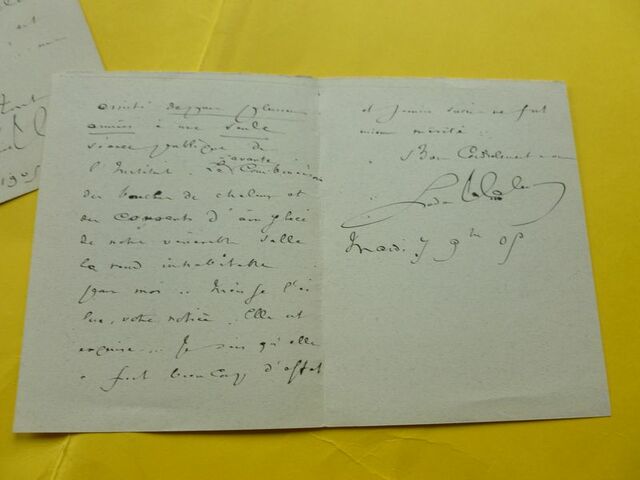 assisté depuis plusieurs
années à une seule
séance publique de
l'Institut. La savante
Combinaison
des bouches de chaleur et
des courants d'air glacé
de notre vénérable salle
la rend inhabitable
pour moi .. Mais je l'ai
lue, votre notice. Elle est
exquise... Je sais qu'elle
a fait beaucoup d'effet
et jamais succès ne fut
mieux mérité ..
Bien Cordialement
Mardi 7 9bre 05
1905